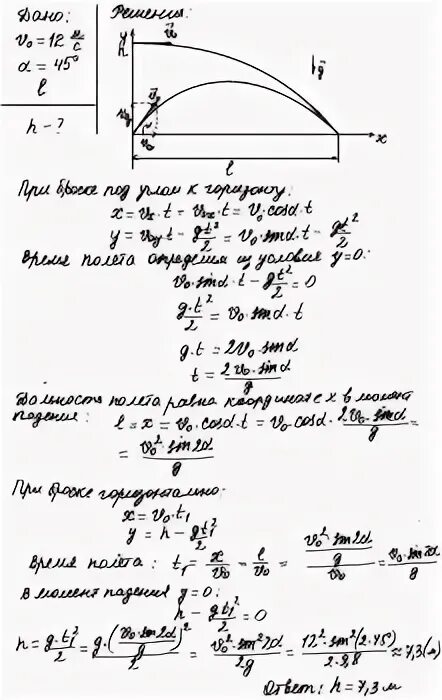 Дано:
v₀ = 12 м/с
α = 45°
l
h - ?
Решение:
y
h
v⃗₀
g⃗
v⃗₀
v_y
v_x
x
l
При броске под углом к горизонту:
x = vₓ · t = v₀ₓ · t = v₀ · cosα · t
y = v₀y · t - gt²/2 = v₀ · sinα · t - gt²/2
Время полета определим из условия y=0:
v₀ · sinα · t - gt²/2 = 0
g·t²/2 = v₀ · sinα · t
g · t = 2v₀ · sinα
t = 2v₀ · sinα/g
Дальность полета равна координате x в момент
падения: l = x = v₀ · cosα · t = v₀ · cosα · 2v₀ · sinα/g =
= v₀² · sin2α/g
При броске горизонтально:
x = v₀ · t₁
y = h - gt₁²/2
Время полета: t₁ = x/v₀ = l/v₀ = (v₀² · sin2α/g)/v₀ = v₀ · sin2α/g
В момент падения y = 0:
h - gt₁²/2 = 0
h = g·t₁²/2 = g·(v₀·sin2α/g)²/2 = v₀²·sin²2α/2g = 12²·sin²(2·45°)/2·9,8 ≈ 7,3 (м)
Ответ: h = 7,3 м